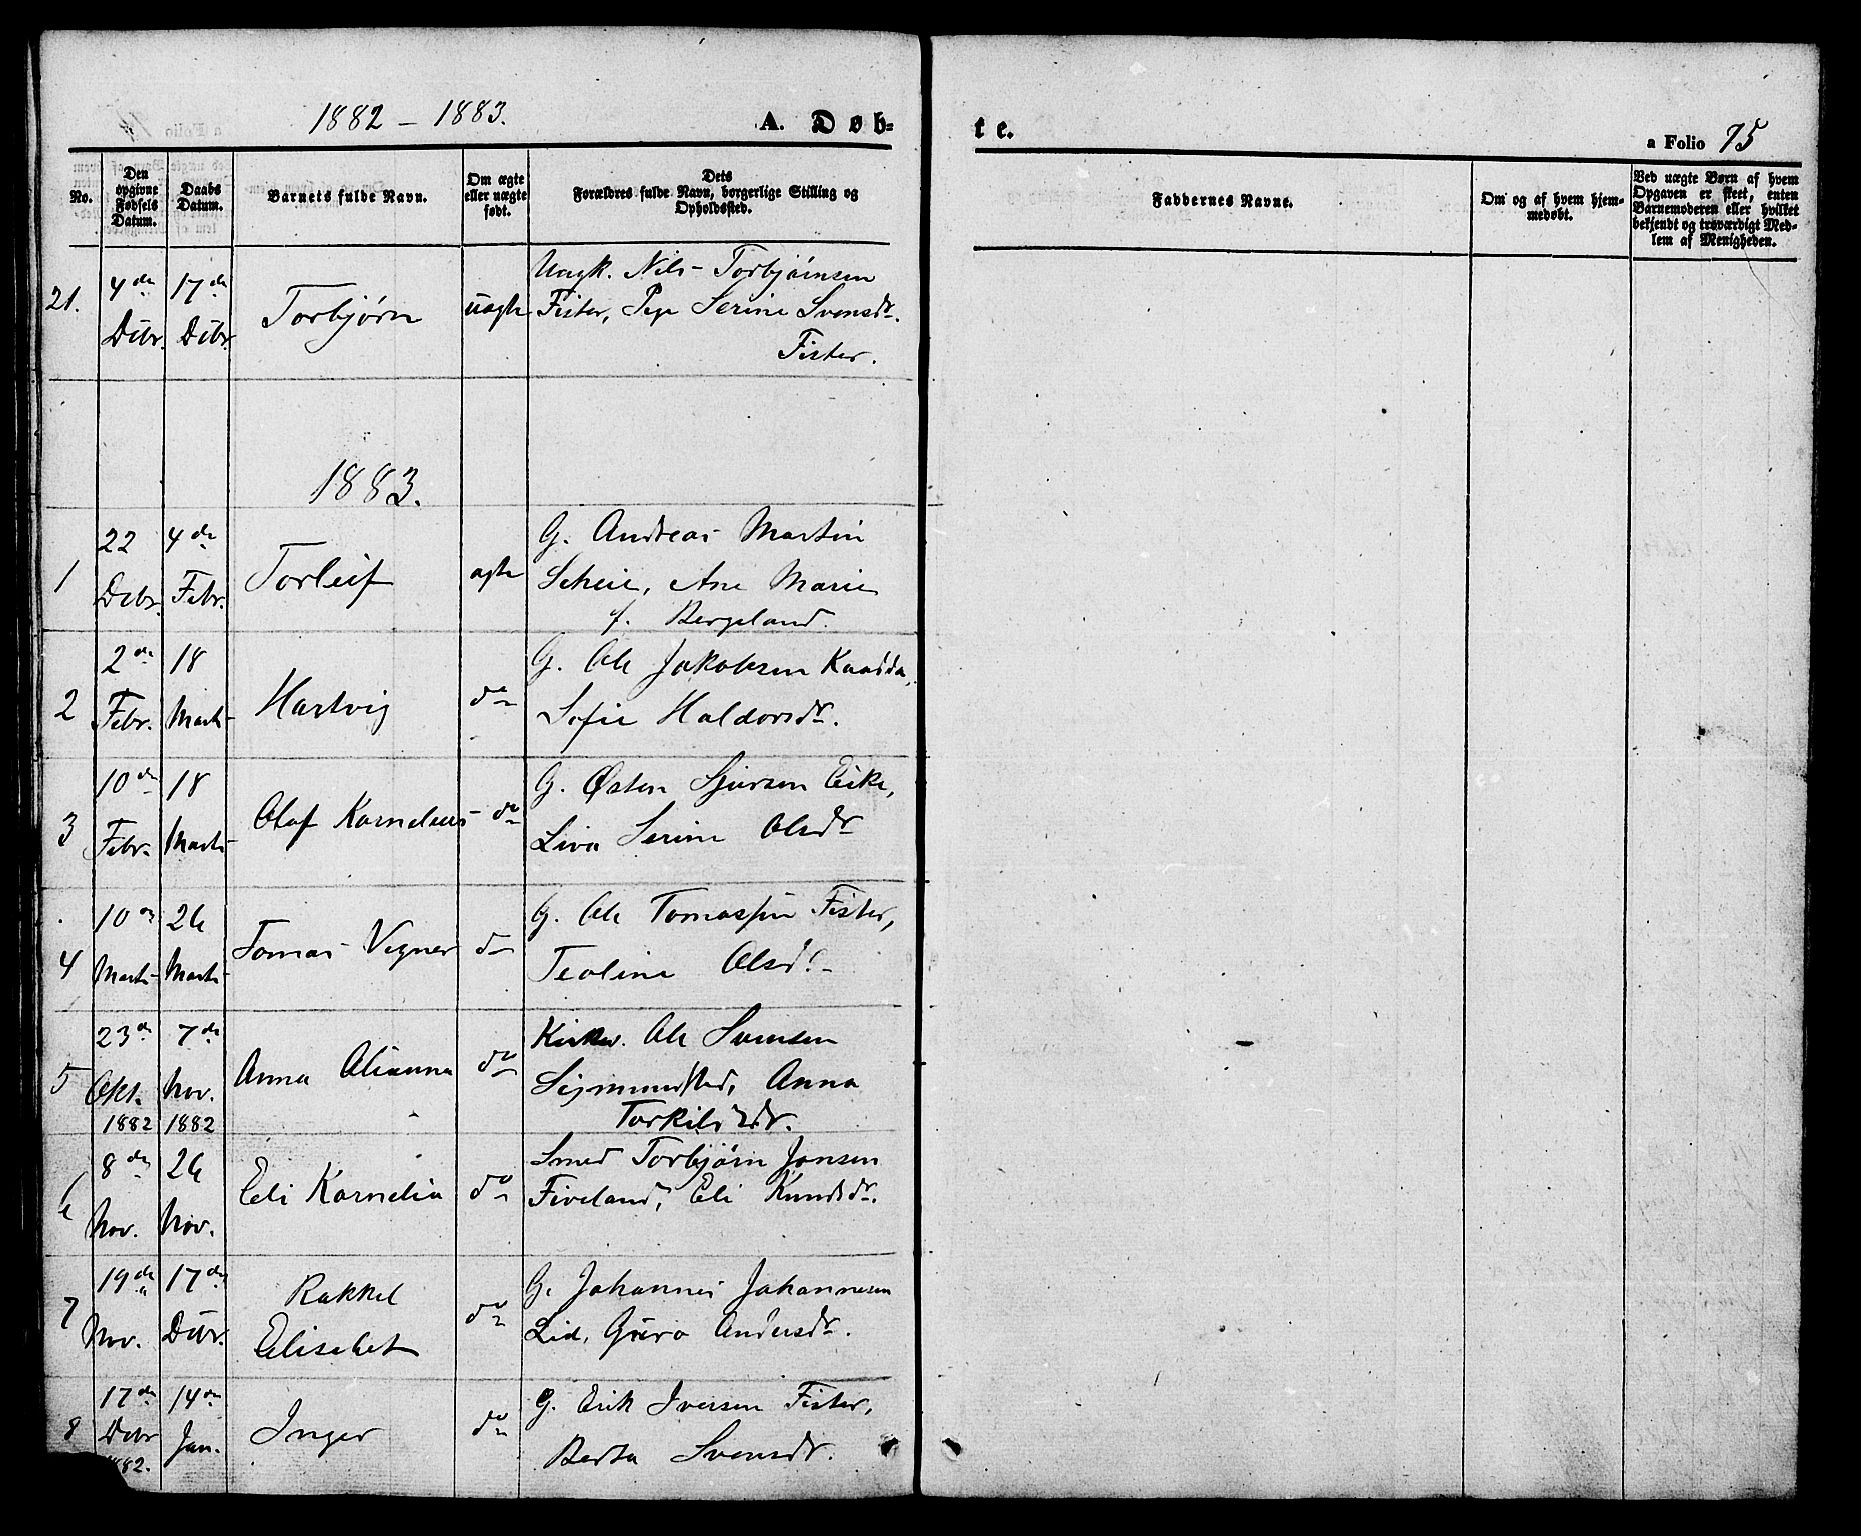 1882 – 1883.
A. Døb=
te.
a Folio 75
No.
Den opgivne Fødsels Datum.
Daabs Datum.
Barnets fulde Navn.
Om ægte eller uægte født.
Dets Forældres fulde Navn, borgerlige Stilling og Opholdssted.
Faddernes Navne.
Om og af hvem hjemmedøbt.
Ved uægte Børn af hvem Opgaven er skeet, enten Barnemoderen eller hvilket bekjendt og troværdigt Medlem af Menigheden.
21.
4de Dcbr.
17de Dcbr.
Torbjørn
uægte
Ungk. Nils Torbjörnsen
Fister, Pige Serine Svensdr.
Fister.
1883.
1
22 Dcbr.
4de Febr.
Torleif
ægte
G. Andreas Martin
Scheie, Ane Marie
f. Bergeland.
2
2de Febr.
18 Marts
Hartvig
do
G. Ole Jakobsen Kaadda,
Sofie Haldorsdr.
3
10de Febr.
18 Marts
Olaf Kornelius
do
G. Østen Sjursen Eike,
Liva Serine Olsdr
4
10de Marts
26 Marts
Tomas Vegner
do
G. Ole Tomassen Fister,
Teoline Olsdr
5
23de Okt. 1882
7de Nov. 1882
Anna Olianna
do
Kirkes. Ole Svensen
Sigmundstad, Anna
Torkilsdr.
6
8de Nov.
26 Nov.
Eli Kornelia
do
Smed Torbjørn Jansen
Fiveland, Eli Knudsdr.
7
19de Nov.
17de Dcbr.
Rakkel
Elisebet
do
G. Johannes Johannesen
Lid, Guro Andersdr.
8
17de Dcbr 1882.
14de Jan.
Inger
do
G. Erik Iversen Fister,
Berta Svensdr.